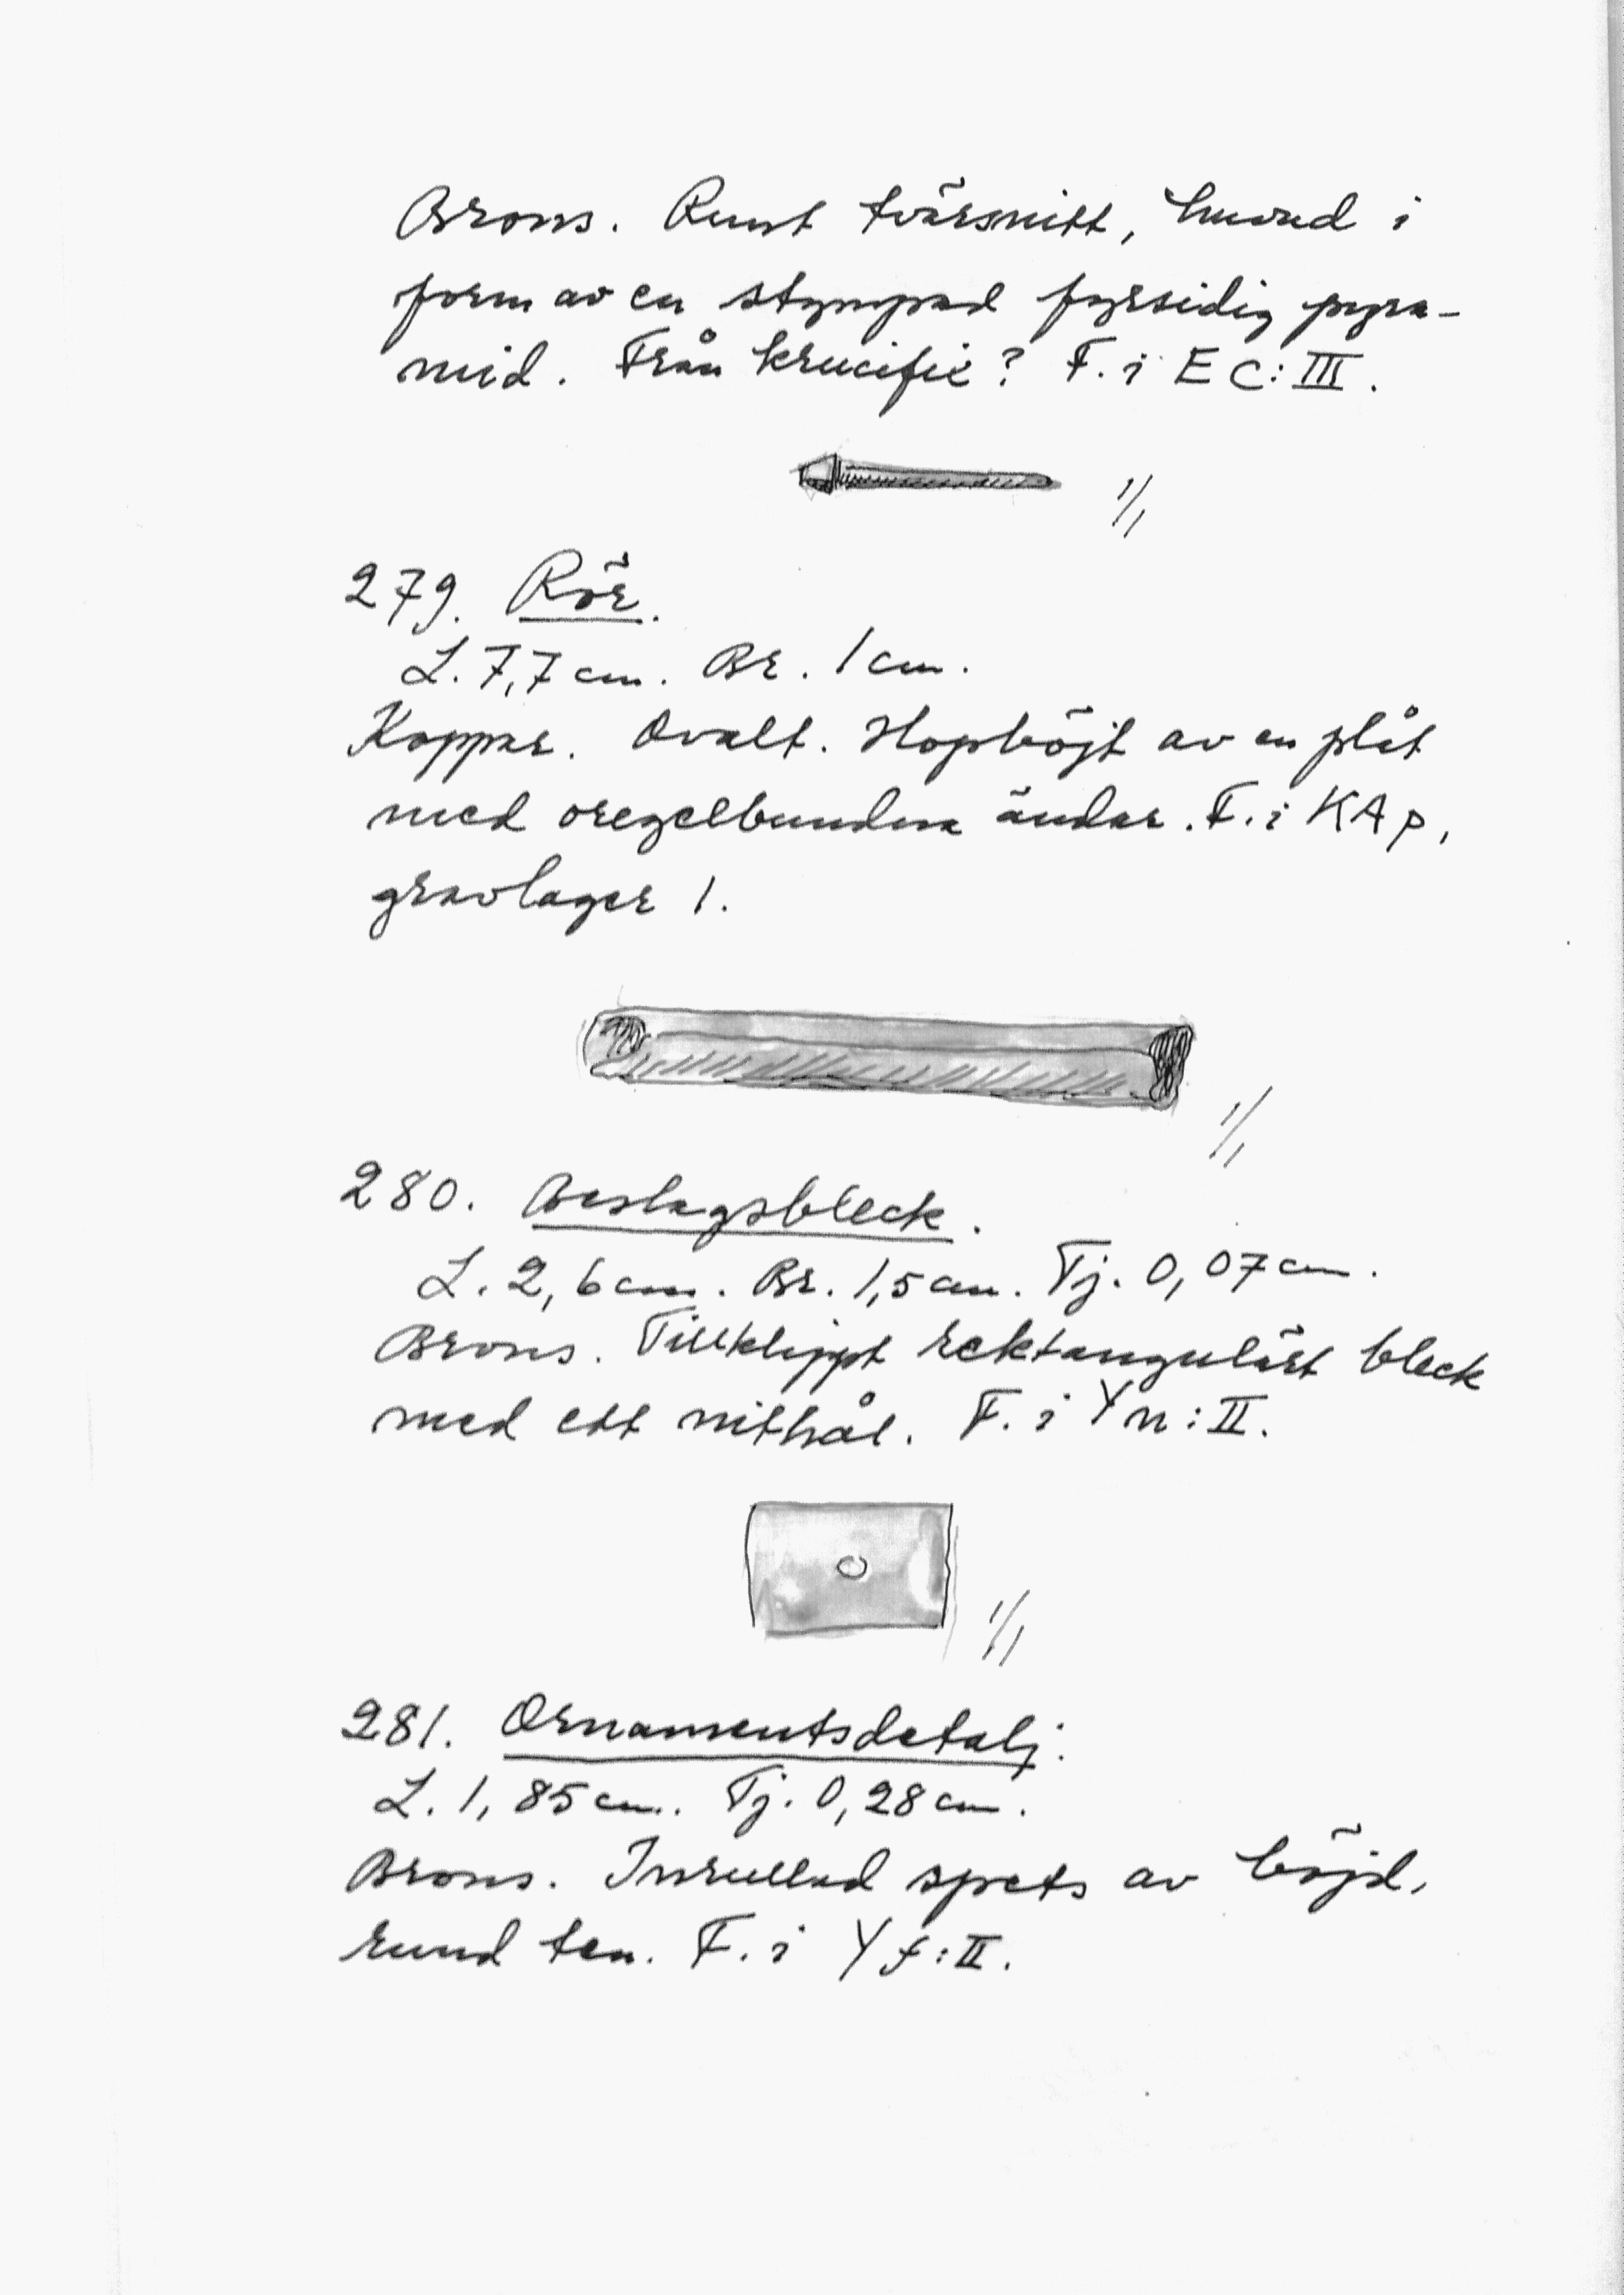 Brons. Runt tvärsnitt, huvud i
form av en stympad fyrsidig pyra-
mid. Från krucifix? F. i EC:III.
1/1
279. Rör.
L. 7,7 cm. Br. 1 cm.
Koppar. Ovalt. Hopböjt av en plåt
med oregelbundna ändar. F. i KAp,
gravlager 1.
1/1
280. Beslagsbleck.
L. 2,6 cm. Br. 1,5 cm. Tj. 0,07 cm.
Brons. Tillklippt rektangulärt bleck
med ett nithål. F. i Yn:II.
1/1
281. Ornamentsdetalj.
L. 1,85 cm. Tj. 0,28 cm.
Brons. Inrullad spets av böjd,
rund ten. F. i Yf:II.